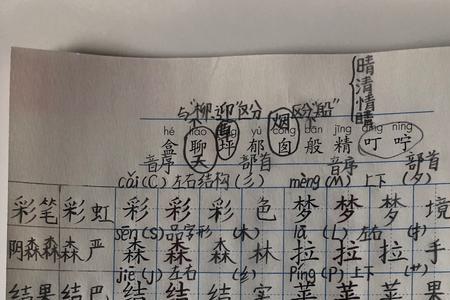 晴
清
情
睛
与"柳、迎"区分 烟 区分"船"
草
hé liáo píng yù cōng bān jīng dīng níng
盒 聊 坪 郁 囱 般 精 叮 咛
天
音序 部首 音序 部首
cǎi (C) 左右结构 (彡) mèng (M) 上下 (夕)
彩笔 彩虹 彩 彩 彩 色 梦 梦 梦 境
sēn (S) 品字形 (木) lā (L) 左右 (扌)
阴森森 森严 森 森 森 林 拉 拉 拉 手
jiē (J) 左右 (纟) Píng (P) 上下 (艹)
结果 结巴 结 结 结 实 苹 苹 苹 果